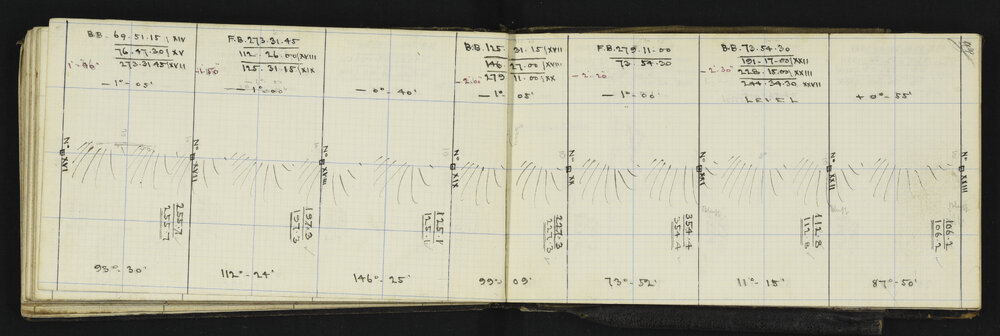 B.B. 69.51.15 / XIV
76.47.30 / XV
273.31.45 / XVII
— 1°- 05'
F.B. 273.31.45
112.26.00 / XVIII
125.31.15 / XIX
— 1°-00'
— 0°- 40'
B.B. 125.31.15 / XVII
146.27.00 / XVIII
279.11.00 / XX
— 1°- 05'
F.B. 279.11.00
73.54.30
— 2°.20'
— 1°-00'
B.B. 73.54.30
191-17-00 / XXII
228.15.00 / XXIII
244.34.30 XXVII
— 2°.30'
LEVEL
+ 0°- 55'
N° XVI
N° XVII
N° XVIII
N° XIX
N° XX
N° XXI
N° XXII
N° XXIII
255.7
255.7
197.3
197.3
125.1
125.1
227.3
227.3
354.4
354.4
112.8
112.8
106.2
106.2
Bluff
Bluff
93°- 30'
112°- 24'
146°- 25'
99°- 09'
73°- 52'
11°- 15'
87°- 50'